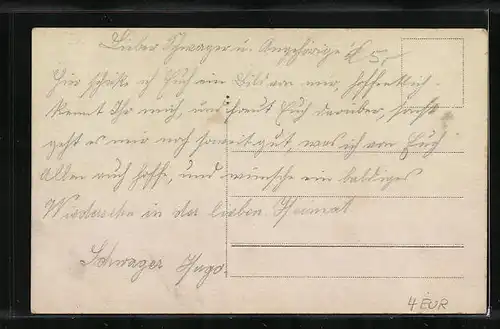 Lieber Schwager u. Angehörige! 5,-
Hier schicke ich Euch ein Bild von mir, hoffentlich
kennt Ihr mich, und freut Euch darüber, sonst
geht es mir noch soweit gut, was ich von Euch
Allen auch hoffe, und wünsche ein baldiges
Wiedersehn in der lieben Heimat
Schwager Hugo.
4 EUR